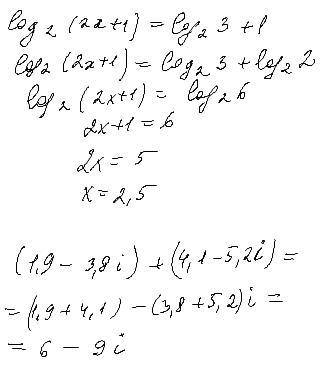 log₂ (2x+1) = log₂ 3 + 1
log₂ (2x+1) = log₂ 3 + log₂ 2
log₂ (2x+1) = log₂ 6
2x+1 = 6
2x = 5
x = 2,5
(1,9 - 3,8i) + (4,1 - 5,2i) =
= (1,9 + 4,1) - (3,8 + 5,2)i =
= 6 - 9i